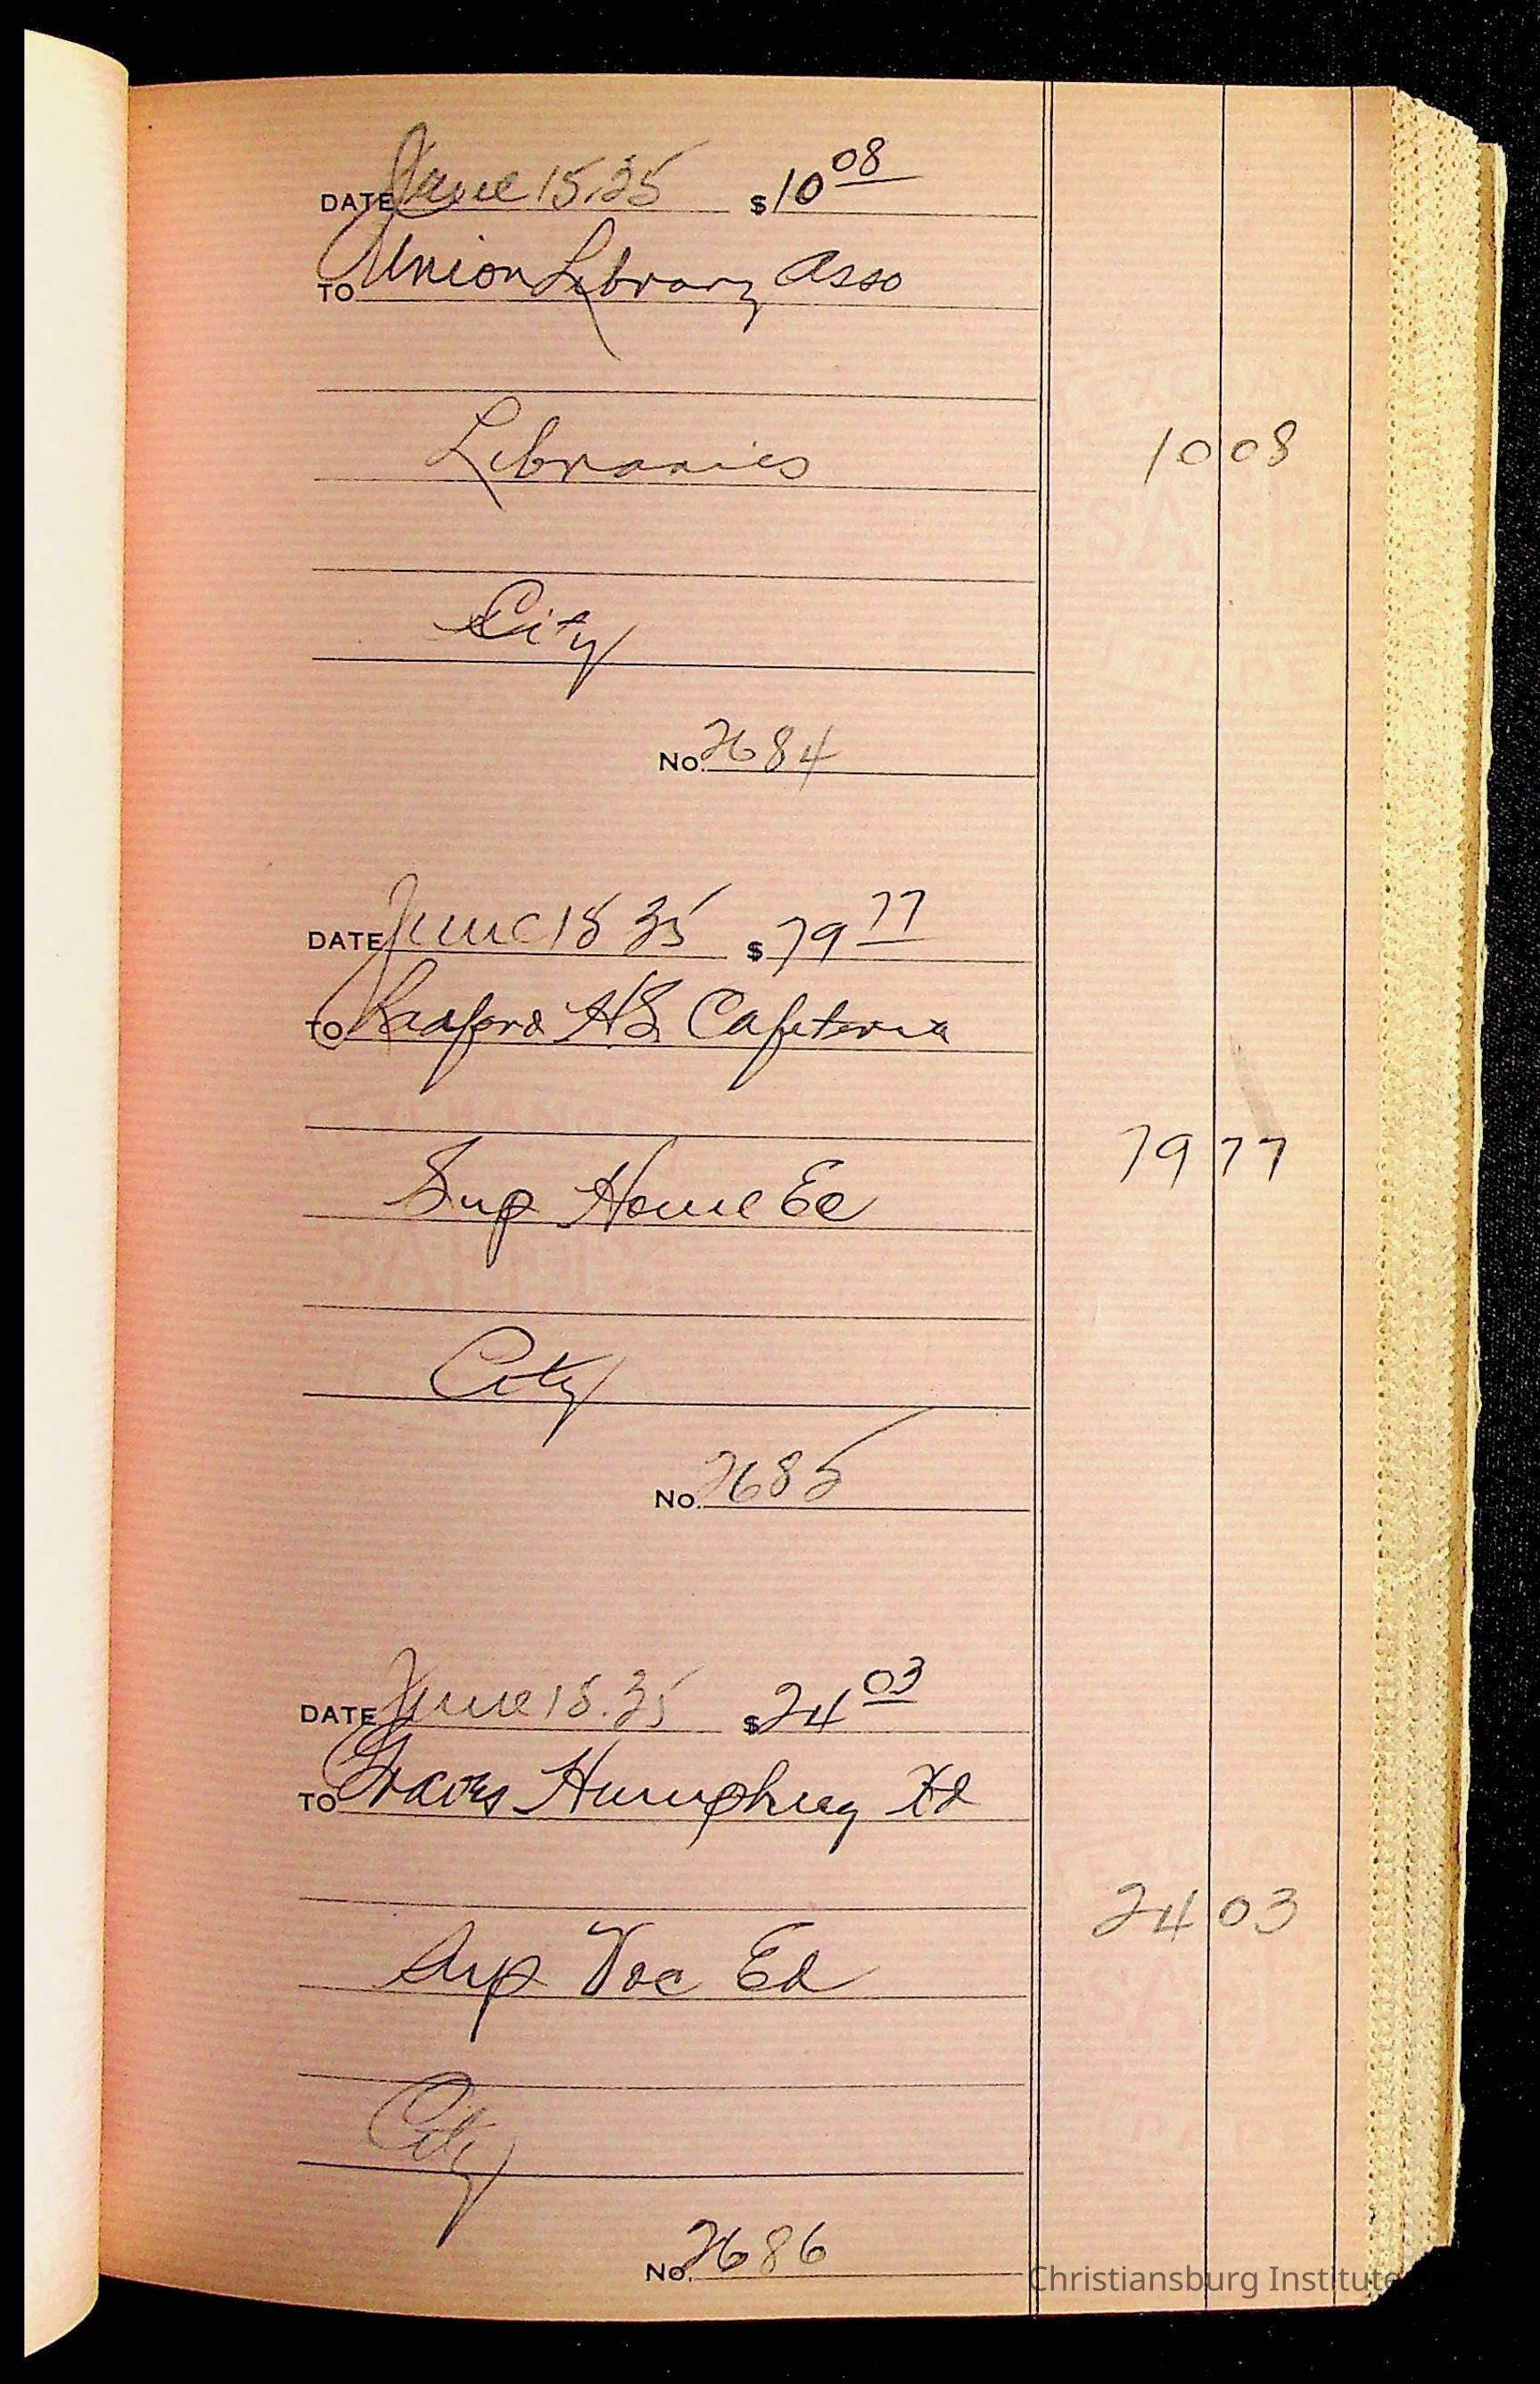 DATE June 15.35 $10 08
TO Union Library Asso
Libraries 10 08
City
No. 2684
DATE June 18 35 $79 77
TO Radford HS. Cafeteria
79 77
Sup Home Ec
City
No. 2685
DATE June 18.35 $24 03
TO Graves Humphrey
24 03
Sup Voc Ed
City
No. 2686
Christiansburg Institute